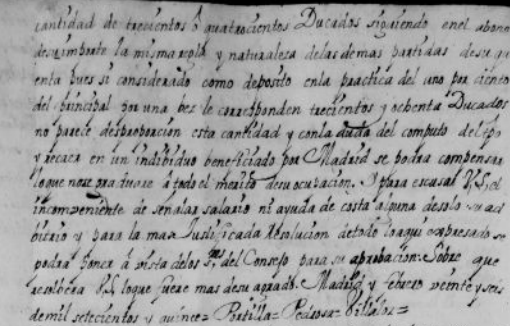 cantidad de trecientos ô quatrocientos Ducados siguiendo enel abono
desuimporte la misma regla y naturaleza delas demas partidas desu qu
enta pues si considerado como deposito enla practica del uno por ciento
del principal por una bes le corresponden trecientos y ochenta Ducados
no parece desproporcion esta cantidad y conla duda del computo del tpo
y recaer en un indibiduo beneficiado por Madrid se podra compensar
loque nose graduare â todo el merito desu ocupacion. Y para escusar V.S. el
incombeniente de señalar salario ni ayuda de costa alguna desolo su ar
bitrio y para la mas Justificada Resolucion detodo loaqui expresado se
podra poner â vista delos s.res del Consejo para su aprobacion. Sobre que
resolbera V.S. loque fuere mas desu agrado. Madrid y febrero veinte y seis
demil setecientos y quince = Portilla = Pedrosa = Villalos =